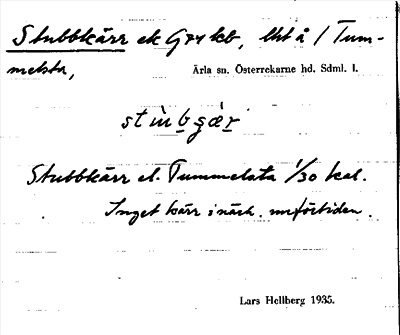 Stubbkärr ek G 1/4 kb, lht å / Tum-
melsta,
Ärla sn. Österrekarne hd. Sdml. l.
Stubbkärr el. Tummelsta 1/30 kal.
Inget kärr i närh. nuförtiden.
Lars Hellberg 1935.